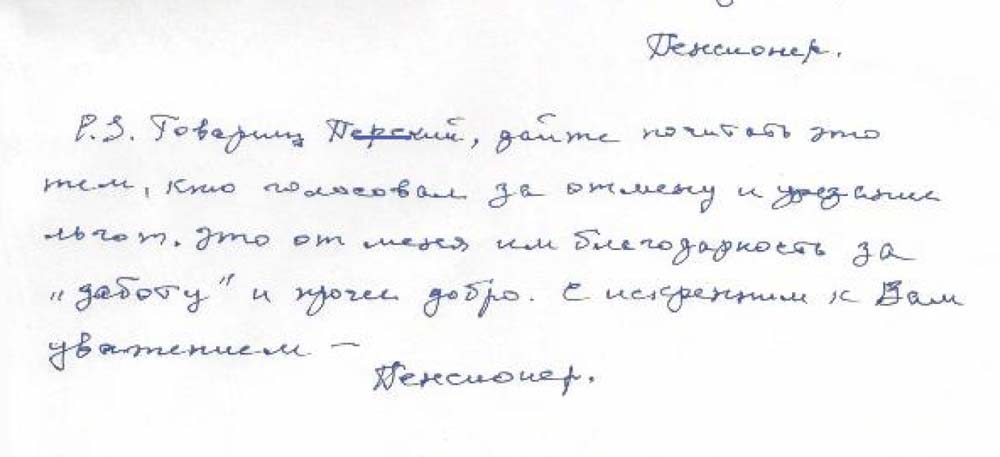 Пенсионер.
P.S. Товарищ Перский, дайте почитать это
тем, кто голосовал за отмену и урезание
льгот. Это от меня им благодарность за
"заботу" и прочее добро. С искренним к Вам
уважением –
Пенсионер.